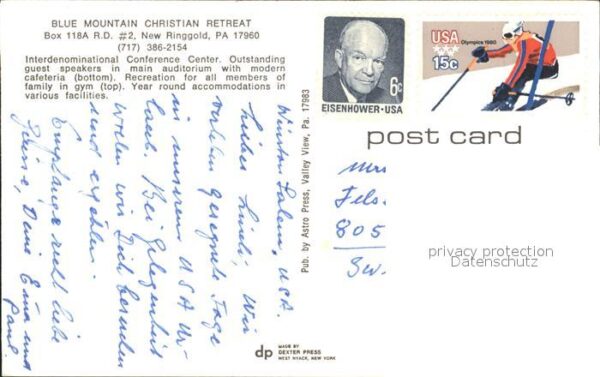 BLUE MOUNTAIN CHRISTIAN RETREAT
Box 118A R.D. #2, New Ringgold, PA 17960
(717) 386-2154
Interdenominational Conference Center. Outstanding
guest speakers in main auditorium with modern
cafeteria (bottom). Recreation for all members of
family in gym (top). Year round accommodations in
various facilities.
Winston Salem, USA.
Wir
verleben gesegnete Tage
in unserem USA Ur-
laub. Bei Gelegenheit
wollen wir Dich besuchen
und erzählen.
Empfange recht liebe
Grüsse, Deine Erna und
Paul.
Pub. by Astro Press, Valley View, Pa. 17983
6c
EISENHOWER·USA
USA
Olympics 1980
15c
post card
Mrs
Fels.
805
Sw.
privacy protection
Datenschutz
dp
MADE BY
DEXTER PRESS
WEST NYACK, NEW YORK